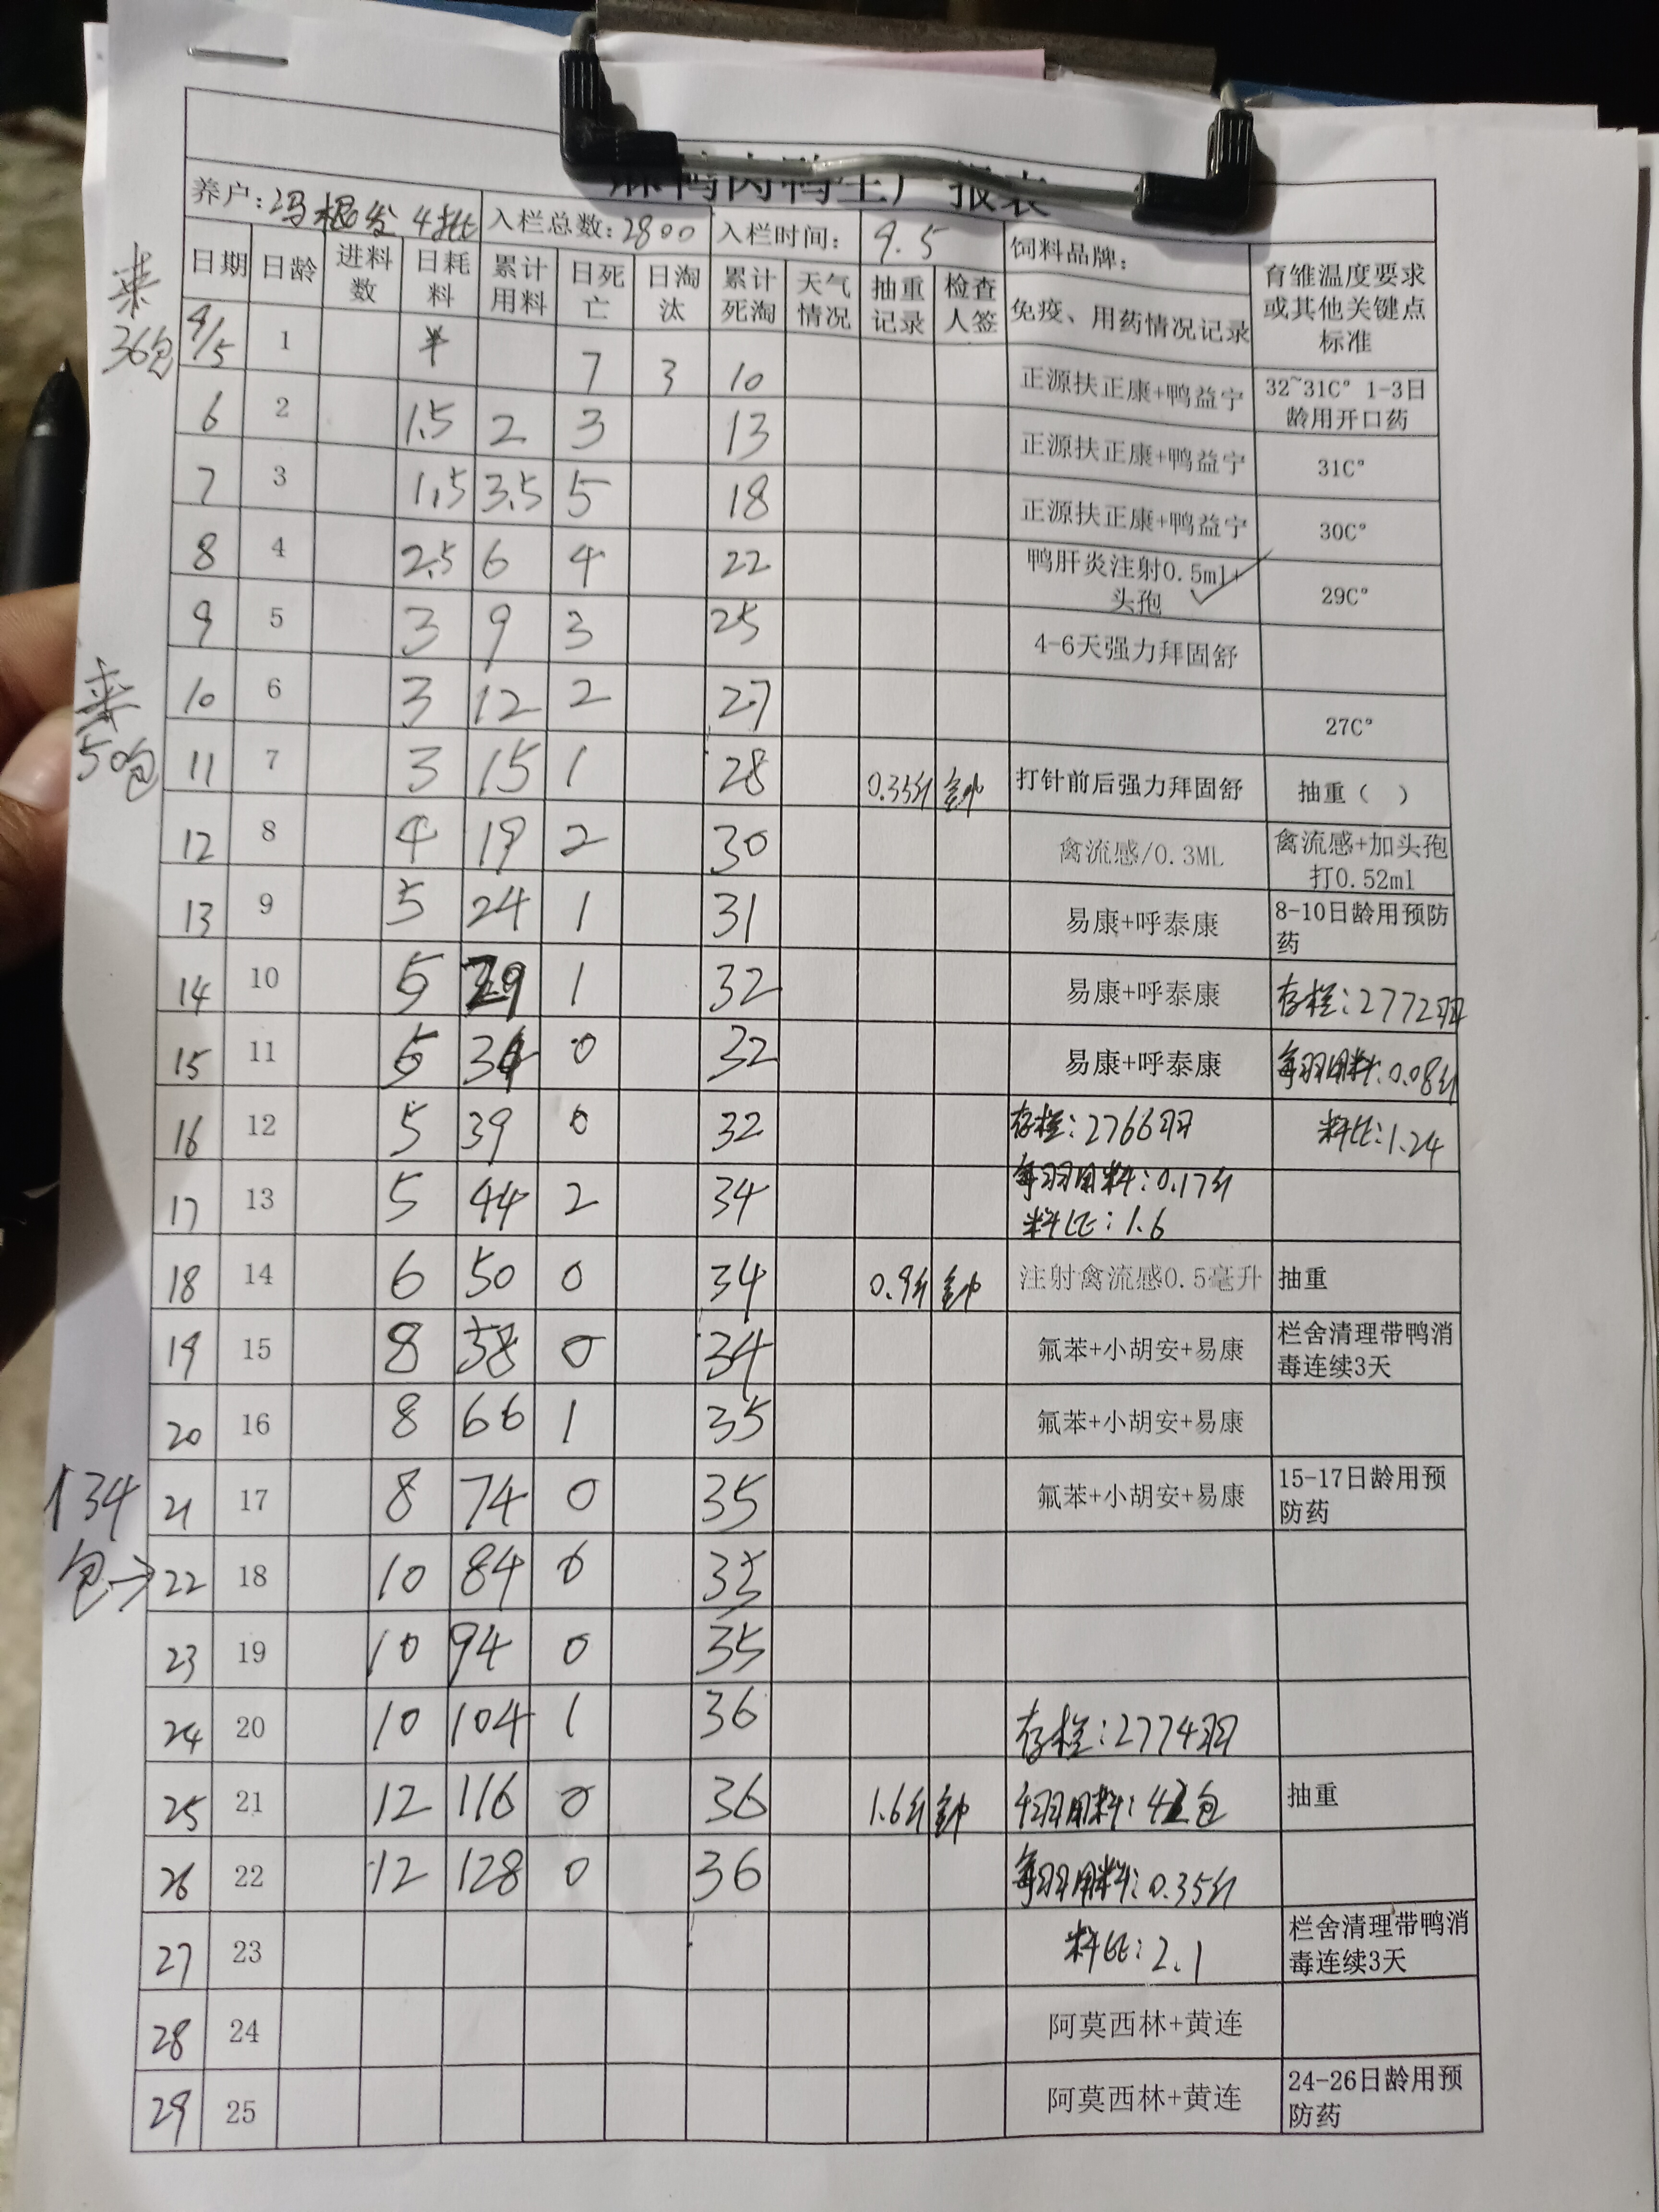 麻鸭肉鸭生产报表
养户:冯根发 4批 入栏总数:2800 入栏时间: 9.5 饲料品牌: 育雏温度要求或其他关键点标准
日期 日龄 进料数 日耗料 累计用料 日死亡 日淘汰 累计死淘 天气情况 抽重记录 检查人签 免疫、用药情况记录
来
36包
9/5 1 半 7 3 10 正源扶正康+鸭益宁 32~31C° 1-3日龄用开口药
6 2 1.5 2 3 13 正源扶正康+鸭益宁 31C°
7 3 1.5 3.5 5 18 正源扶正康+鸭益宁 30C°
8 4 2.5 6 4 22 鸭肝炎注射0.5ml+头孢 ✓ 29C°
9 5 3 9 3 25 4-6天强力拜固舒
来
50包
10 6 3 12 2 27 27C°
11 7 3 15 1 28 0.35斤 打针前后强力拜固舒 抽重（ ）
12 8 4 19 2 30 禽流感/0.3ML 禽流感+加头孢打0.52ml
13 9 5 24 1 31 易康+呼泰康 8-10日龄用预防药
14 10 5 29 1 32 易康+呼泰康 存栏:2772羽
15 11 5 34 0 32 易康+呼泰康 每羽用料:0.08斤
16 12 5 39 0 32 存栏:2766羽 料比:1.24
17 13 5 44 2 34 每羽用料:0.17斤
料比:1.6
18 14 6 50 0 34 0.9斤 注射禽流感0.5毫升 抽重
19 15 8 58 0 34 氟苯+小胡安+易康 栏舍清理带鸭消毒连续3天
20 16 8 66 1 35 氟苯+小胡安+易康
21 17 8 74 0 35 氟苯+小胡安+易康 15-17日龄用预防药
134
包→
22 18 10 84 0 35
23 19 10 94 0 35
24 20 10 104 1 36 存栏:2774羽
25 21 12 116 0 36 1.6斤 千羽用料:42包 抽重
26 22 12 128 0 36 每羽用料:0.35斤
27 23 料比:2.1 栏舍清理带鸭消毒连续3天
28 24 阿莫西林+黄连
29 25 阿莫西林+黄连 24-26日龄用预防药